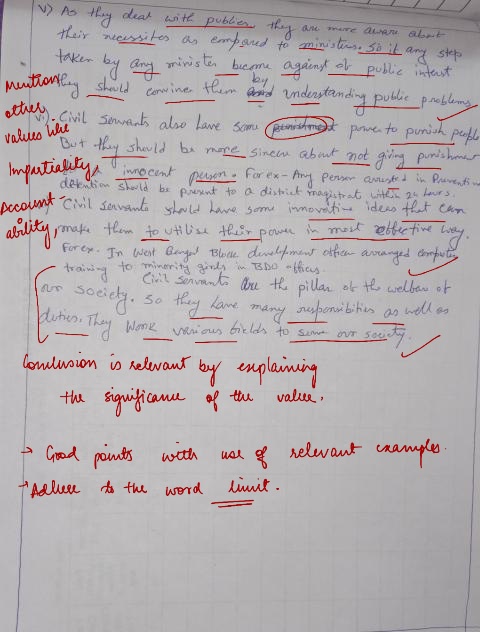 v) As they deal with publics they are more aware about
their necessites as compared to ministers. So if any step
taken by any minister become against of public interest
they should convince them by understanding public problems
Mention
other
values like
Impartiality,
Account-
ability,
vi) Civil servants also have some punishment power to punish people
But they should be more sincere about not giving punishment
innocent person. For ex- Any person arrested in Preventive
detention should be present to a district magistrate within 24 hours.
Civil servants should have some innovative ideas that can
make them to utilise their power in most effective way.
For ex. In West Bengal Block development officer arranged computer
training to minority girls in BDO offices.
Civil servants are the pillar of the welfare of
our society. So they have many responsibities as well as
duties. They work various fields to serve our society.
Conclusion is relevant by explaining
the significance of the value.
→ Good points with use of relevant examples.
→ Adhere to the word limit.